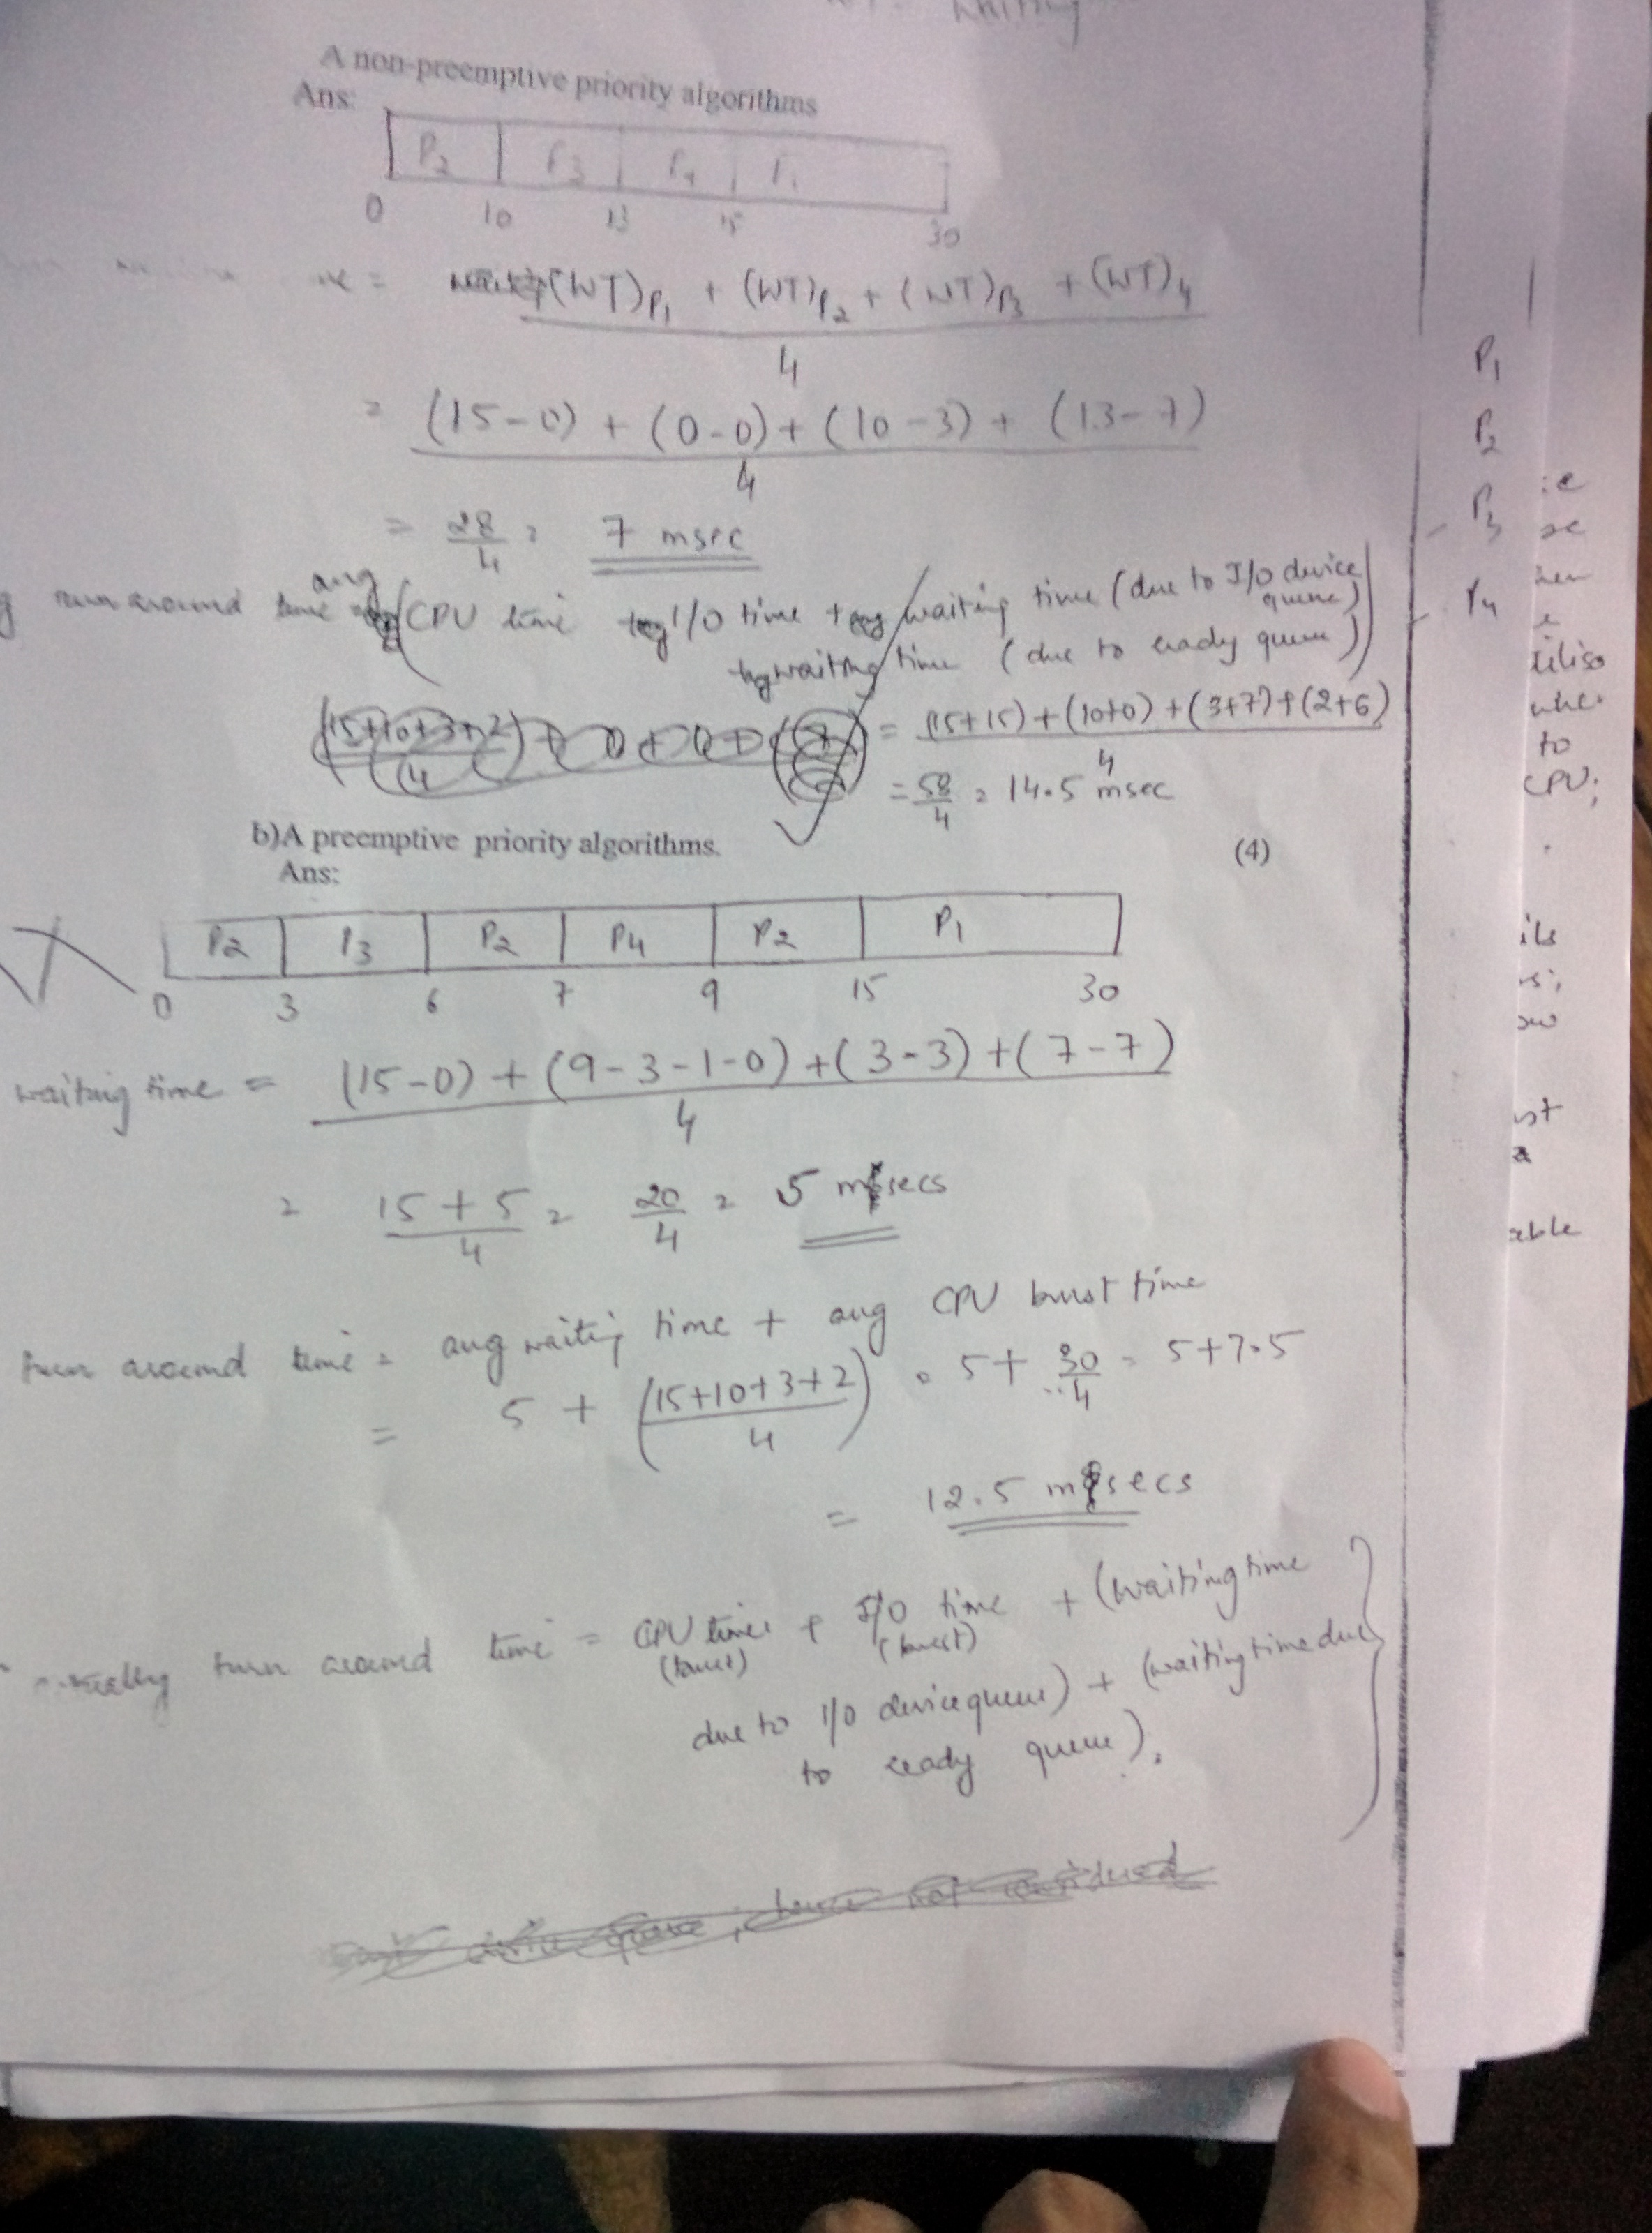 waiting
A non-preemptive priority algorithms
Ans:
P2 P3 P4 P1
0 10 13 15 30
= (WT)P1 + (WT)P2 + (WT)P3 + (WT)4
4
= (15-0) + (0-0) + (10-3) + (13-7)
4
= 28/4 = 7 msec
turn around time avg (CPU time I/O time + waiting time (due to I/O device queue)
waiting time (due to ready queue))
(15+10+3+2)
4
= (15+15) + (10+0) + (3+7) + (2+6)
4
= 58/4 = 14.5 msec
b)A preemptive priority algorithms. (4)
Ans:
P2 P3 P2 P4 P2 P1
0 3 6 7 9 15 30
waiting time = (15-0) + (9-3-1-0) + (3-3) + (7-7)
4
= 15+5/4 = 20/4 = 5 msecs
turn around time = avg waiting time + avg CPU burst time
= 5 + (15+10+3+2/4) = 5 + 30/4 = 5+7.5
= 12.5 msecs
turn around time = CPU time + I/O time + (waiting time
(burst) (burst)
due to I/O device queue) + (waiting time due
to ready queue).
queue, hence not considered
P1
P2
P3
P4
to
CPU;
able